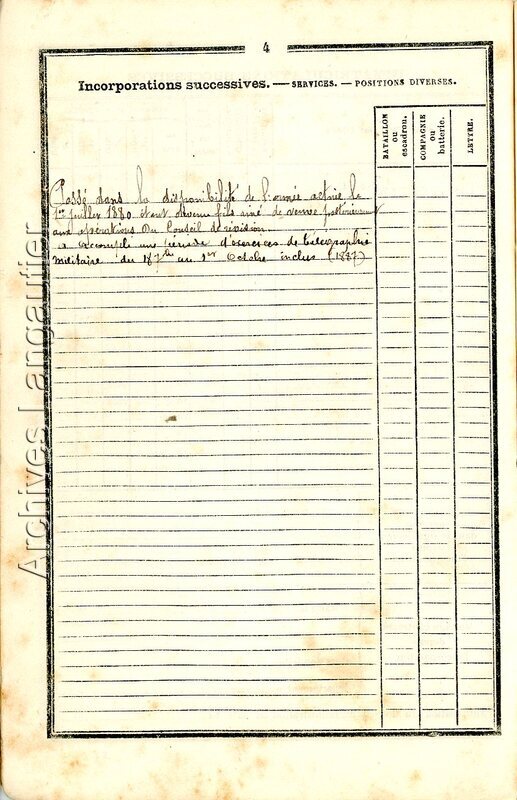 4
Incorporations successives. — SERVICES. — POSITIONS DIVERSES.
BATAILLON
ou
escadron.
COMPAGNIE
ou
batterie.
LETTRE.
Passé dans la disponibilité de l'armée active le
1er juillet 1880 étant devenu fils ainé de veuve postérieurement
aux opérations du Conseil de révision.
a accompli une période d'exercices de télégraphie
militaire du 18 7bre au 1er Octobre inclus (1887)
Archives Langautier